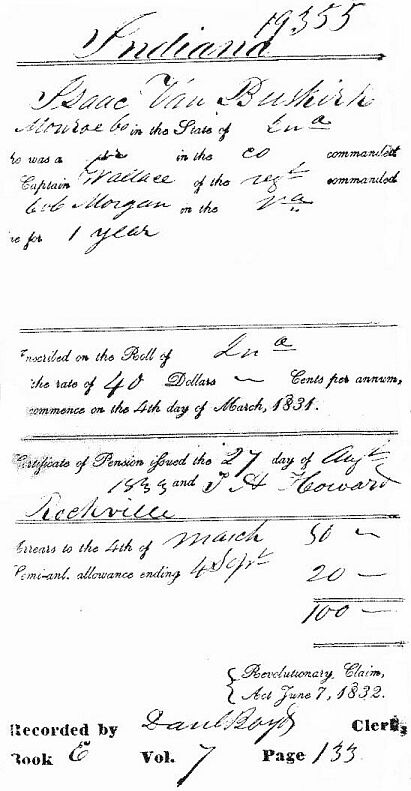 19355
Indiana
Isaac Van Buskirk
Monroe Co in the State of Ina
ho was a pr in the co commanded
Captain Wallace of the regt commanded
Col Morgan in the Va
ne for 1 year
nscribed on the Roll of Ina
the rate of 40 Dollars — Cents per annum,
commence on the 4th day of March, 1831.
Certificate of Pension issued the 27 day of Augt
1833 and T H Howard
Rockville
Arrears to the 4th of march 80 —
Semi-anl. allowance ending 4 Sept 20 —
100 —
Revolutionary Claim,
Act June 7, 1832.
Recorded by Danl Boyd Clerk,
Book E Vol. 7 Page 133